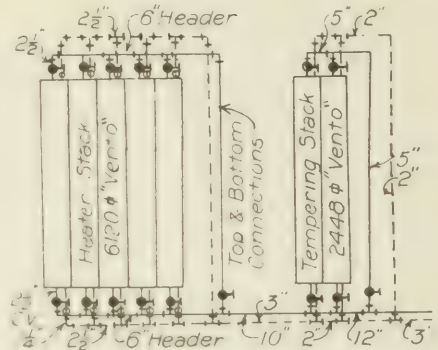 2½"
6" Header
2½"
5"
2"
Heater Stack
6120 Φ "Vento"
Top & Bottom
Connections
Tempering Stack
2448 Φ "Vento"
5"
2"
3"
4"
2½"
6" Header
10"
2"
12"
3"